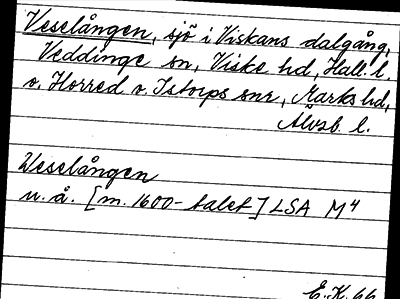 Veselången, sjö i Viskans dalgång,
Veddinge sn, Viske hd, Hall. l.
o. Horred o. Istorps snr, Marks hd,
Älvsb. l.
Weselången
u. å. [m. 1600-talet] LSA M4
E. K. 66